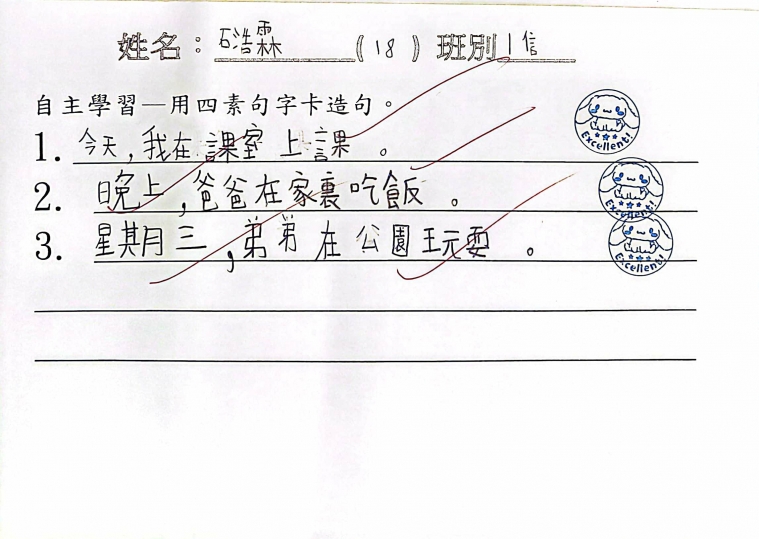 姓名：石浩霖（18）班別 1信
自主學習—用四素句字卡造句。
1. 今天，我在課室上課。
Excellent!
2. 晚上，爸爸在家裏吃飯。
Excellent!
3. 星期三，弟弟在公園玩耍。
Excellent!